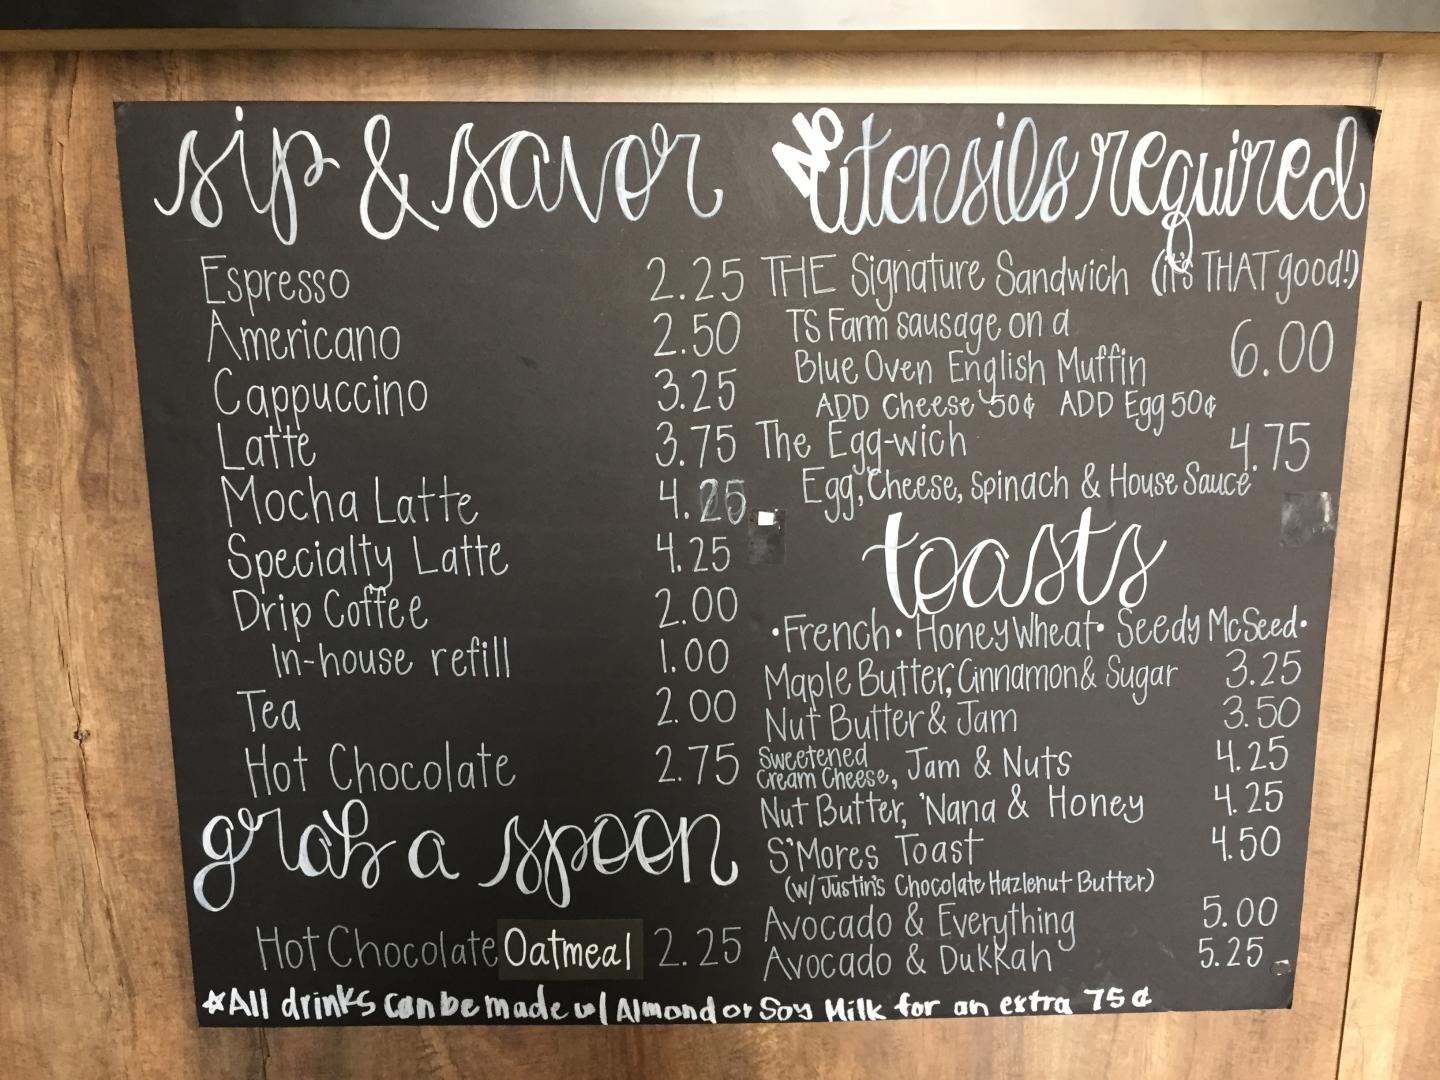 sip & savor
Espresso 2.25
Americano 2.50
Cappuccino 3.25
Latte 3.75
Mocha Latte 4.25
Specialty Latte 4.25
Drip Coffee 2.00
In-house refill 1.00
Tea 2.00
Hot Chocolate 2.75
grab a spoon
Hot Chocolate Oatmeal 2.25
No utensils required
THE Signature Sandwich (it's THAT good!)
TS Farm sausage on a
Blue Oven English Muffin 6.00
ADD Cheese 50¢ ADD Egg 50¢
The Egg-wich 4.75
Egg, Cheese, Spinach & House Sauce
toasts
•French• Honey Wheat• Seedy McSeed•
Maple Butter, Cinnamon & Sugar 3.25
Nut Butter & Jam 3.50
Sweetened
Cream Cheese, Jam & Nuts 4.25
Nut Butter, 'Nana & Honey 4.25
S'Mores Toast 4.50
(w/ Justin's Chocolate Hazlenut Butter)
Avocado & Everything 5.00
Avocado & Dukkah 5.25
*All drinks can be made w/ Almond or Soy Milk for an extra 75¢